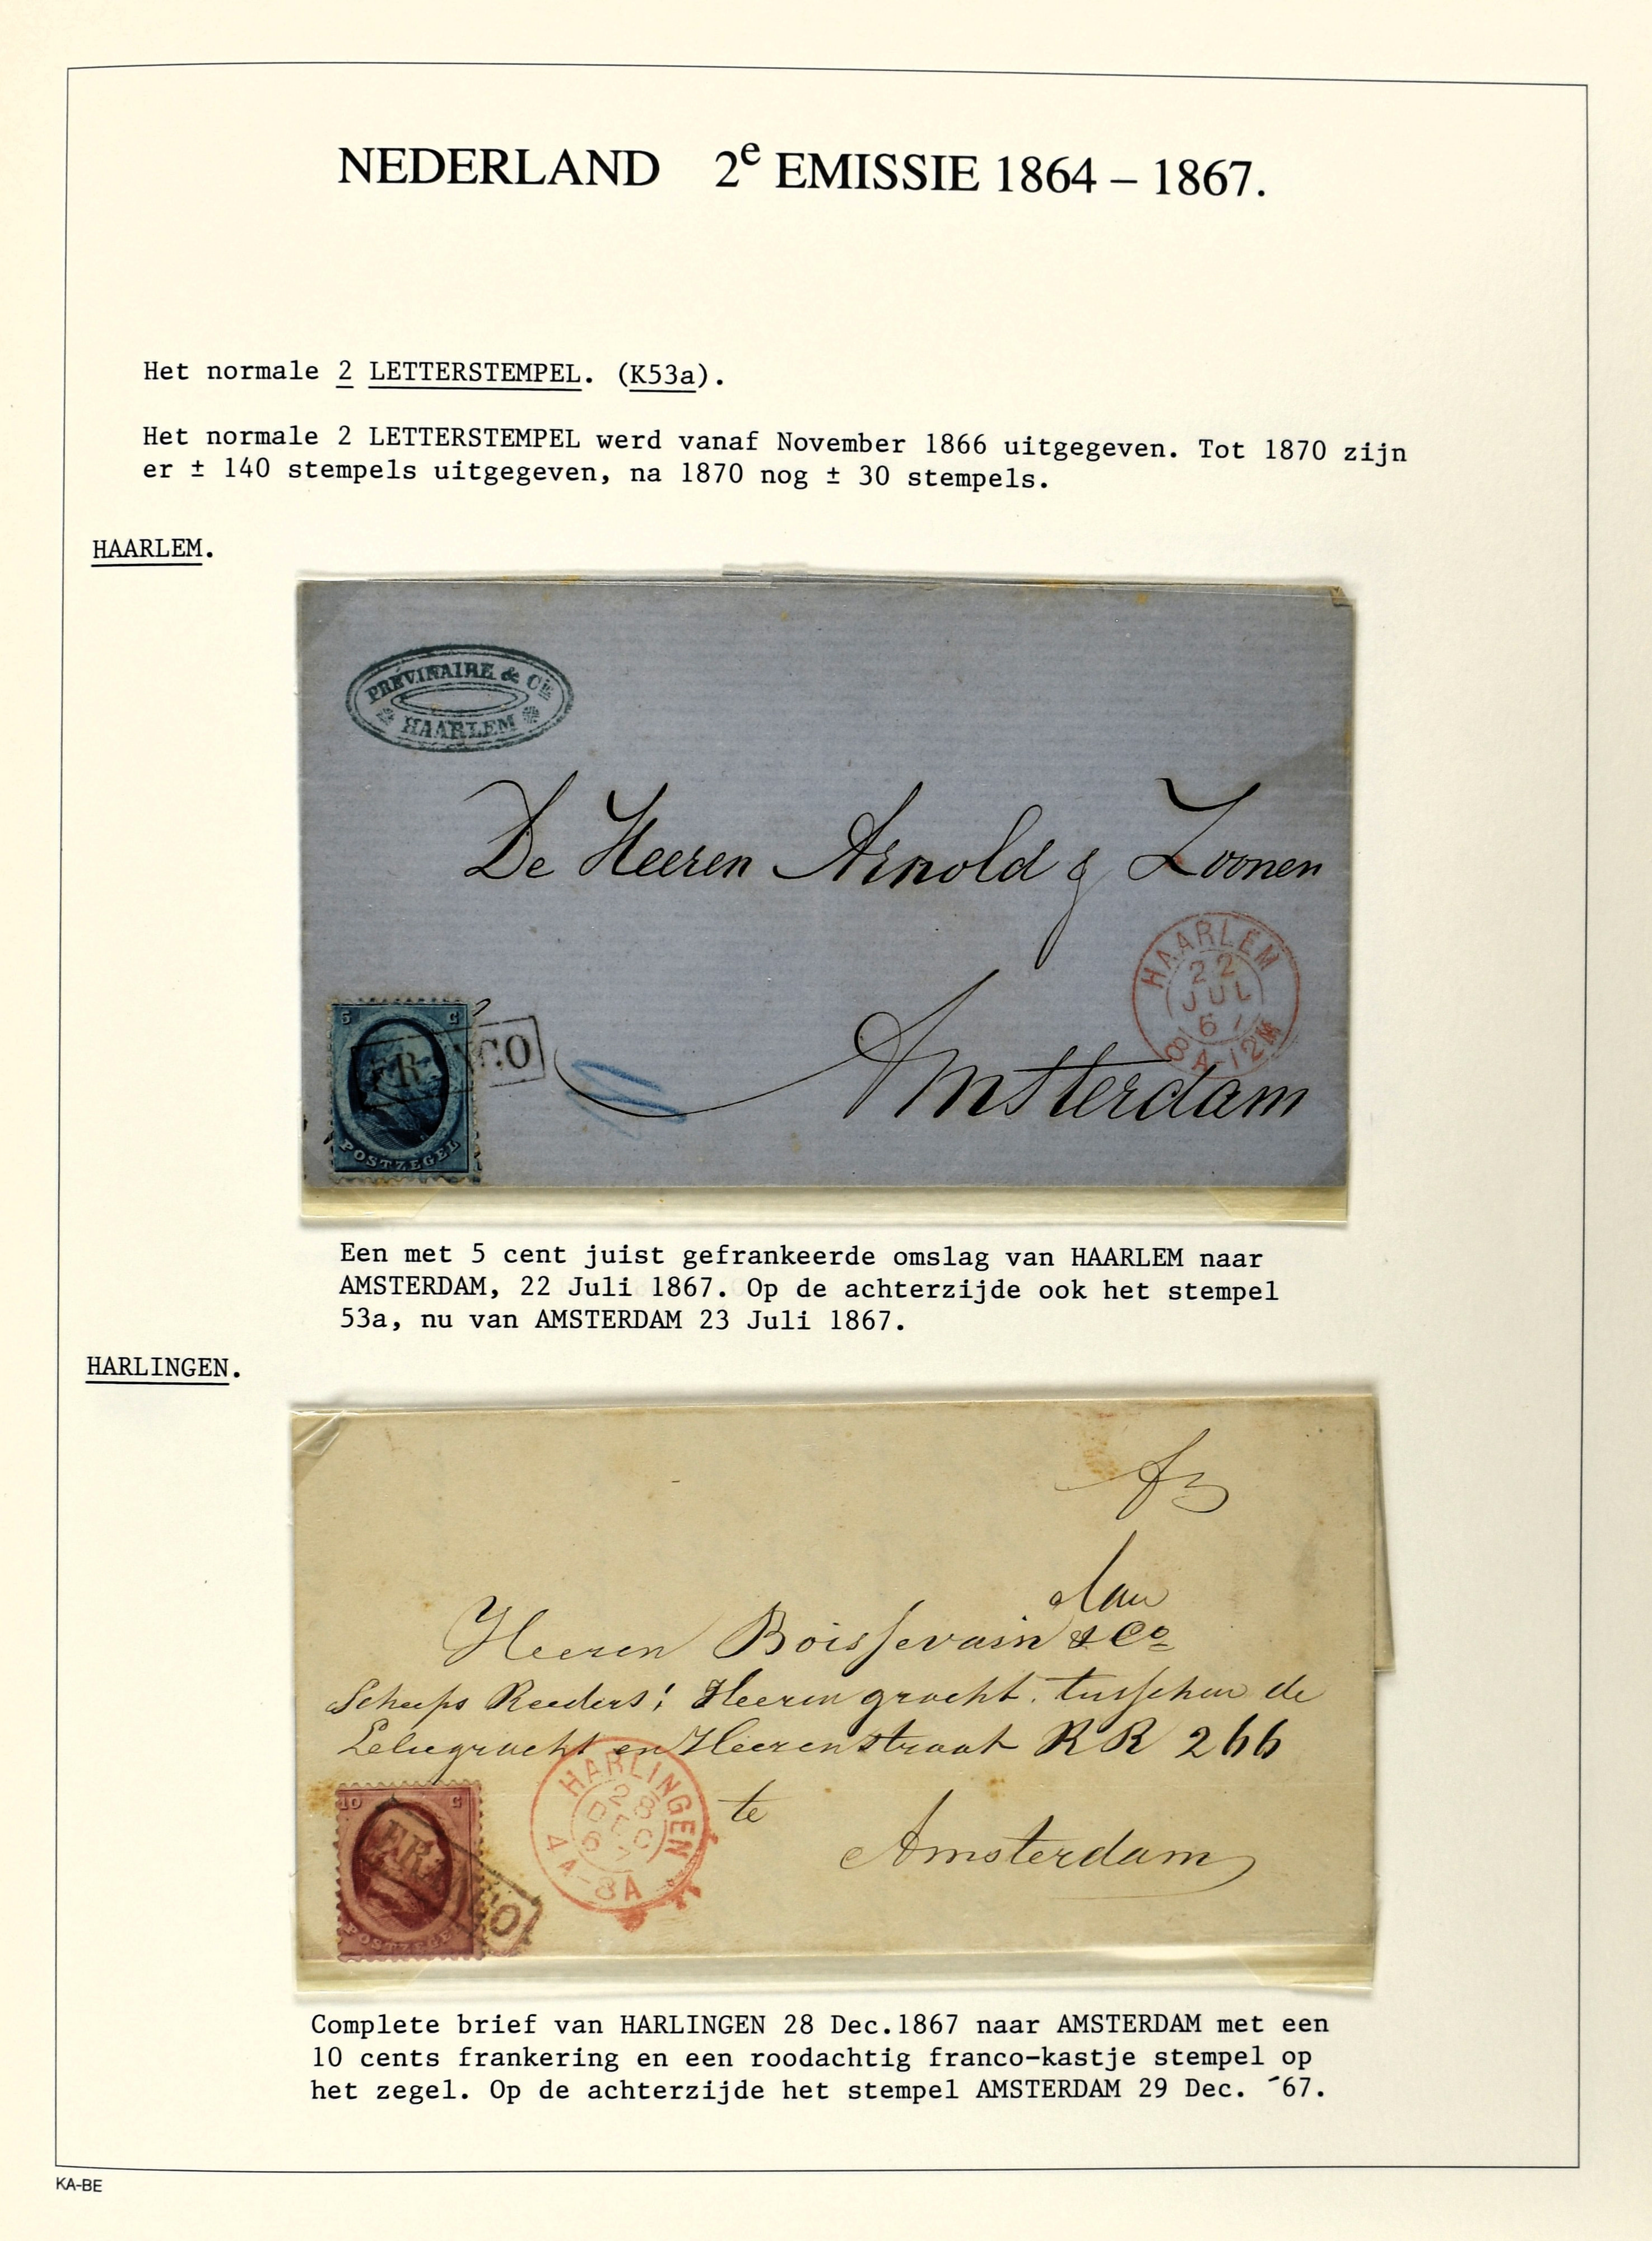 NEDERLAND 2e EMISSIE 1864 – 1867.
Het normale 2 LETTERSTEMPEL. (K53a).
Het normale 2 LETTERSTEMPEL werd vanaf November 1866 uitgegeven. Tot 1870 zijn
er ± 140 stempels uitgegeven, na 1870 nog ± 30 stempels.
HAARLEM.
PRÉVINAIRE & Cie
HAARLEM
De Heeren Arnold & Zoonen
HAARLEM
22
JUL
67
8A-12M
5 C
FRANCO
POSTZEGEL
Amsterdam
Een met 5 cent juist gefrankeerde omslag van HAARLEM naar
AMSTERDAM, 22 Juli 1867. Op de achterzijde ook het stempel
53a, nu van AMSTERDAM 23 Juli 1867.
HARLINGEN.
Aan
Heeren Boissevain & Co
Scheeps Reeders! Heeren gracht. tusschen de
Leliegracht en Heerenstraat RR 266
HARLINGEN
28
DEC
67
4A-8A
te
10 C
FRANCO
POSTZEGEL
Amsterdam
Complete brief van HARLINGEN 28 Dec.1867 naar AMSTERDAM met een
10 cents frankering en een roodachtig franco-kastje stempel op
het zegel. Op de achterzijde het stempel AMSTERDAM 29 Dec. ´67.
KA-BE